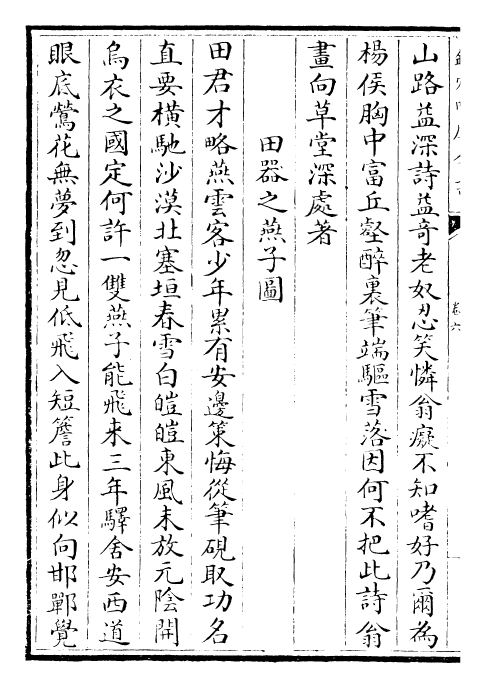 卷六
山路益深詩益竒老奴忍笑憐翁癡不知嗜好乃爾為
楊侯胸中富丘壑醉裏筆端驅雪落因何不把此詩翁
畫向草堂深處著
田器之燕子圖
田君才略燕雲客少年累有安邊策悔從筆硯取功名
直要橫馳沙漠北塞垣春雪白皚皚東風未放元陰開
烏衣之國定何許一雙燕子能飛来三年驛舎安西道
眼底鶯花無夢到忽見低飛入短簷此身似向邯鄲覺